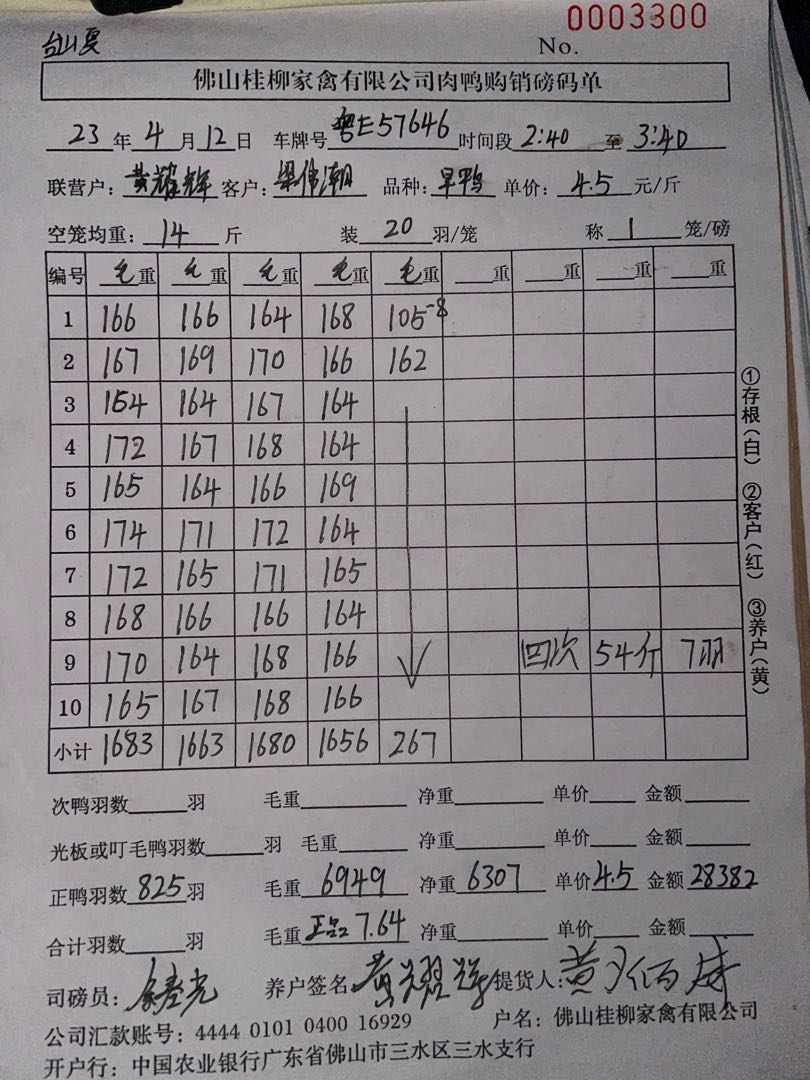 0003300
台山夏 No.
佛山桂柳家禽有限公司肉鸭购销磅码单
23年4月12日 车牌号粤E57646时间段2:40至3:40
联营户:黄耀辉 客户:梁伟潮 品种:旱鸭 单价:4.5元/斤
空笼均重:14斤 装20羽/笼 称1笼/磅
编号 毛重 毛重 毛重 毛重 毛重 重 重 重 重
1 166 166 164 168 105-8
2 167 169 170 166 162
3 154 164 167 164
4 172 167 168 164
5 165 164 166 169
6 174 171 172 164
7 172 165 171 165
8 168 166 166 164
9 170 164 168 166 四次 54斤 7羽
10 165 167 168 166
小计 1683 1663 1680 1656 267
①存根(白) ②客户(红) ③养户(黄)
次鸭羽数羽 毛重 净重 单价 金额
光板或叮毛鸭羽数羽 毛重 净重 单价 金额
正鸭羽数825羽 毛重6949 净重6307 单价4.5 金额28382
合计羽数羽 毛重正品7.64 净重 单价 金额
司磅员: 养户签名:黄耀辉 提货人:黄
公司汇款账号:4444 0101 0400 16929 户名:佛山桂柳家禽有限公司
开户行:中国农业银行广东省佛山市三水区三水支行